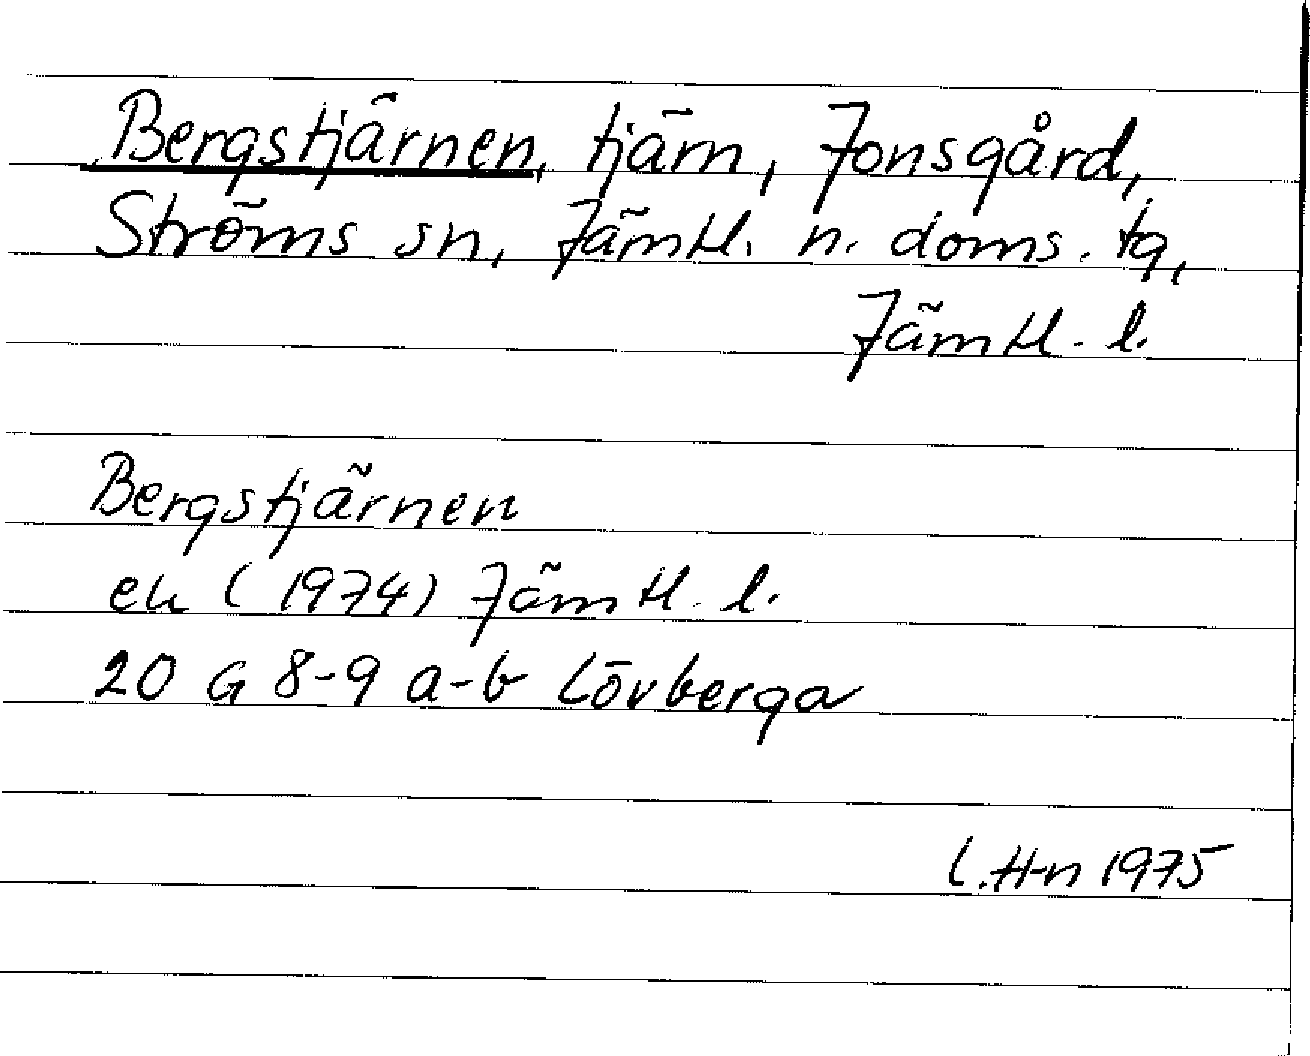 Bergstjärnen, tjärn, Jonsgård,
Ströms sn, Jämtl. n. doms. tg,
Jämtl. l.
Bergstjärnen
ek (1974) Jämtl. l.
20 G 8-9 a-b Lövberga
L. H-n 1975